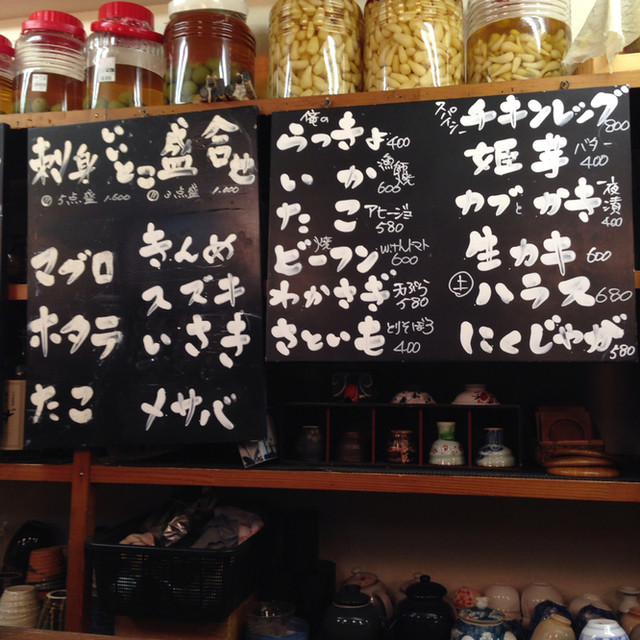 刺身いいとこ盛合せ
5点盛 1.600
3点盛 1.000
きんめ
マグロ
スズキ
ホタテ
いさき
たこ
メサバ
俺の
らっきょ 400
いか 漁師焼 600
たこ アヒージョ 580
焼ビーフン Wトマト 600
わかさぎ 天ぷら 580
さといも とりそぼろ 400
スパイシーチキンレッグ 800
姫芋 バター 400
カブとかき 一夜漬 400
生カキ 600
上ハラス 680
にくじゃが 580